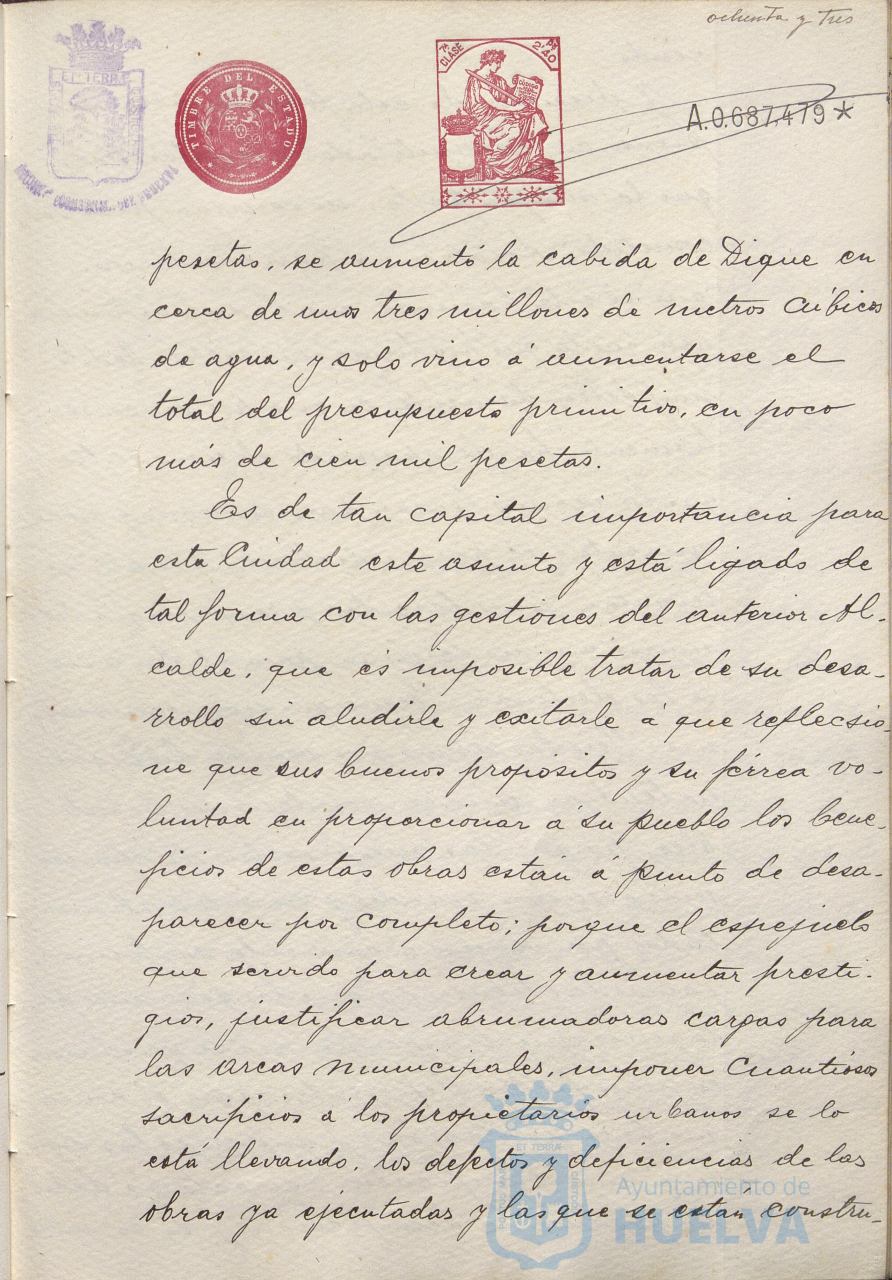 ochenta y tres
TIMBRE DEL ESTADO
7ª CLASE
2'40
PTS
A.0.687.479*
ET TERRÆ
pesetas, se aumentó la cabida de Dique en
cerca de unos tres millones de metros cúbicos
de agua, y solo vino á aumentarse el
total del presupuesto primitivo, en poco
más de cien mil pesetas.
Es de tan capital importancia para
esta Ciudad este asunto y está ligado de
tal forma con las gestiones del anterior Al-
calde, que és imposible tratar de su desa-
rrollo sin aludirle y exitarle á que reflecsio-
ne que sus buenos propósitos y su férrea vo-
luntad en proporcionar á su pueblo los bene-
ficios de estas obras están á punto de desa-
parecer por completo; porque el espejuelo
que servido para crear y aumentar presti-
gios, justificar abrumadoras cargas para
las arcas municipales, imponer cuantiosos
sacrificios á los propietarios urbanos se lo
está llevando, los defectos y deficiencias de las
obras ya ejecutadas y las que se están constru-
ET TERRÆ
Ayuntamiento de
HUELVA